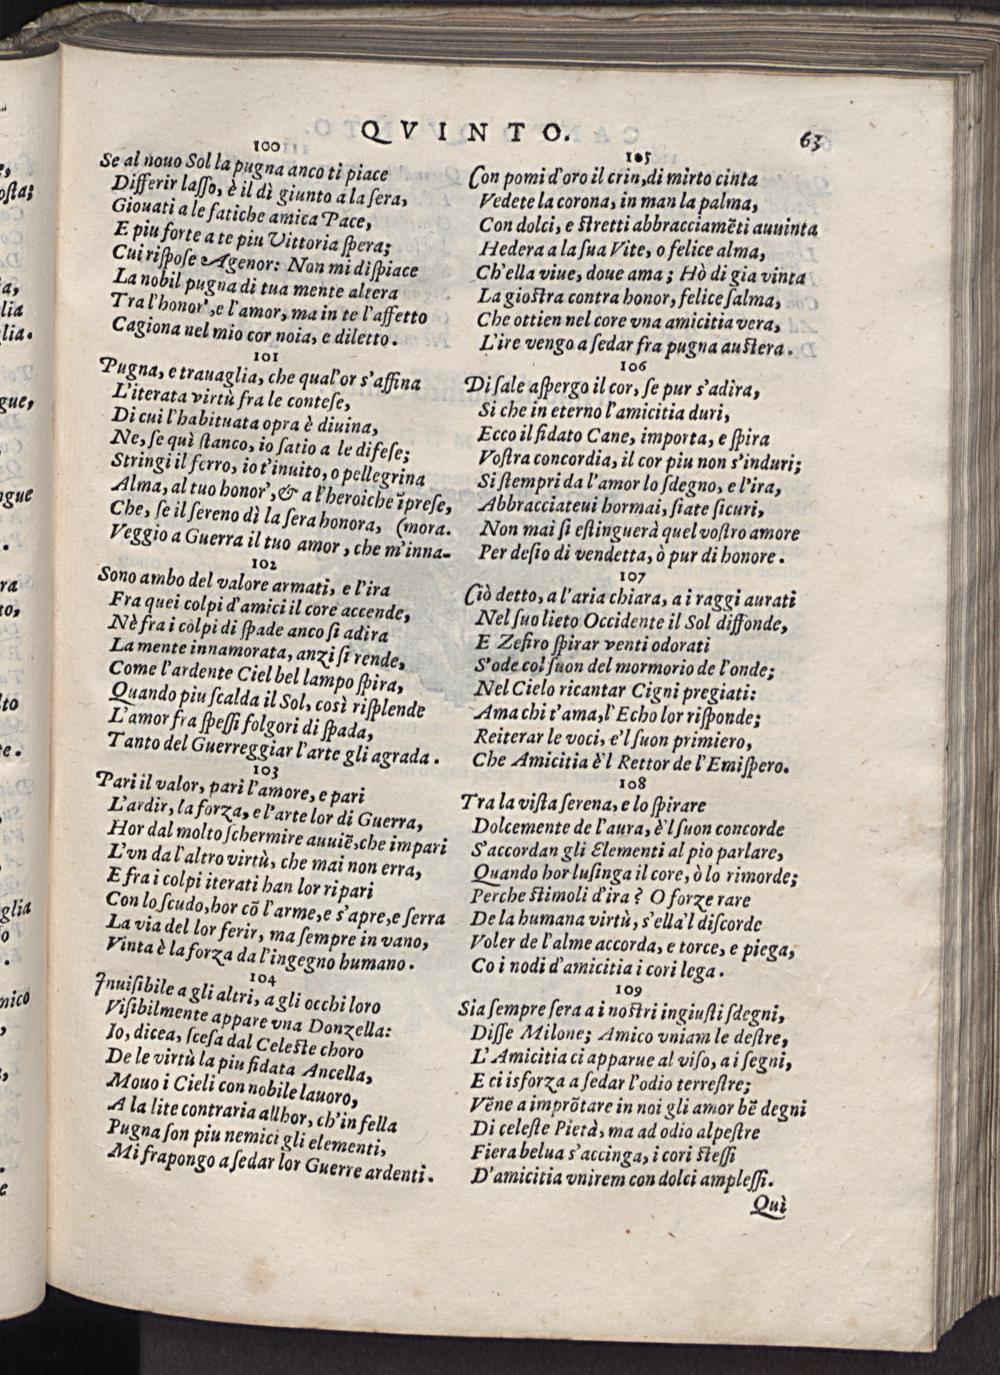 QVINTO.
63
100
Se al nouo Sol la pugna anco ti piace
Differir lasso, è il dì giunto a la sera,
Giouati a le fatiche amica Pace,
E piu forte a te piu Vittoria spera;
Cui rispose Agenor: Non mi dispiace
La nobil pugna di tua mente altera
Tra l'honor', e l'amor, ma in te l'affetto
Cagiona nel mio cor noia, e diletto.
101
Pugna, e trauaglia, che qual'or s'affina
L'iterata virtù fra le contese,
Di cui l'habituata opra è diuina,
Ne, se quì stanco, io satio a le difese;
Stringi il ferro, io t'inuito, o pellegrina
Alma, al tuo honor', & a l'heroiche īprese,
Che, se il sereno dì la sera honora, (mora.
Veggio a Guerra il tuo amor, che m'inna-
102
Sono ambo del valore armati, e l'ira
Fra quei colpi d'amici il core accende,
Nè fra i colpi di spade anco si adira
La mente innamorata, anzi si rende,
Come l'ardente Ciel bel lampo spira,
Quando piu scalda il Sol, così risplende
L'amor fra spessi folgori di spada,
Tanto del Guerreggiar l'arte gli agrada.
103
Pari il valor, pari l'amore, e pari
L'ardir, la forza, e l'arte lor di Guerra,
Hor dal molto schermire auuiē, che impari
L'vn da l'altro virtù, che mai non erra,
E fra i colpi iterati han lor ripari
Con lo scudo, hor cō l'arme, e s'apre, e serra
La via del lor ferir, ma sempre in vano,
Vinta è la forza da l'ingegno humano.
104
Inuisibile a gli altri, a gli occhi loro
Visibilmente appare vna Donzella:
Io, dicea, scesa dal Celeste choro
De le virtù la piu fidata Ancella,
Mouo i Cieli con nobile lauoro,
A la lite contraria allhor, ch'in fella
Pugna son piu nemici gli elementi,
Mi frapongo a sedar lor Guerre ardenti.
105
Con pomi d'oro il crin, di mirto cinta
Vedete la corona, in man la palma,
Con dolci, e stretti abbracciamēti auuinta
Hedera a la sua Vite, o felice alma,
Ch'ella viue, doue ama; Hò di gia vinta
La giostra contra honor, felice salma,
Che ottien nel core vna amicitia vera,
L'ire vengo a sedar fra pugna austera.
106
Di sale aspergo il cor, se pur s'adira,
Si che in eterno l'amicitia duri,
Ecco il fidato Cane, importa, e spira
Vostra concordia, il cor piu non s'induri;
Si stempri da l'amor lo sdegno, e l'ira,
Abbracciateui hormai, siate sicuri,
Non mai si estinguerà quel vostro amore
Per desio di vendetta, ò pur di honore.
107
Ciò detto, a l'aria chiara, a i raggi aurati
Nel suo lieto Occidente il Sol diffonde,
E Zefiro spirar venti odorati
S'ode col suon del mormorio de l'onde;
Nel Cielo ricantar Cigni pregiati:
Ama chi t'ama, l'Echo lor risponde;
Reiterar le voci, e'l suon primiero,
Che Amicitia è'l Rettor de l'Emispero.
108
Tra la vista serena, e lo spirare
Dolcemente de l'aura, è'l suon concorde
S'accordan gli Elementi al pio parlare,
Quando hor lusinga il core, ò lo rimorde;
Perche stimoli d'ira? O forze rare
De la humana virtù, s'ella'l discorde
Voler de l'alme accorda, e torce, e piega,
Co i nodi d'amicitia i cori lega.
109
Sia sempre sera a i nostri ingiusti sdegni,
Disse Milone; Amico vniam le destre,
L'Amicitia ci apparue al viso, a i segni,
E ci isforza a sedar l'odio terrestre;
Vēne a imprōtare in noi gli amor bē degni
Di celeste Pietà, ma ad odio alpestre
Fiera belua s'accinga, i cori stessi
D'amicitia vnirem con dolci amplessi.
Quì